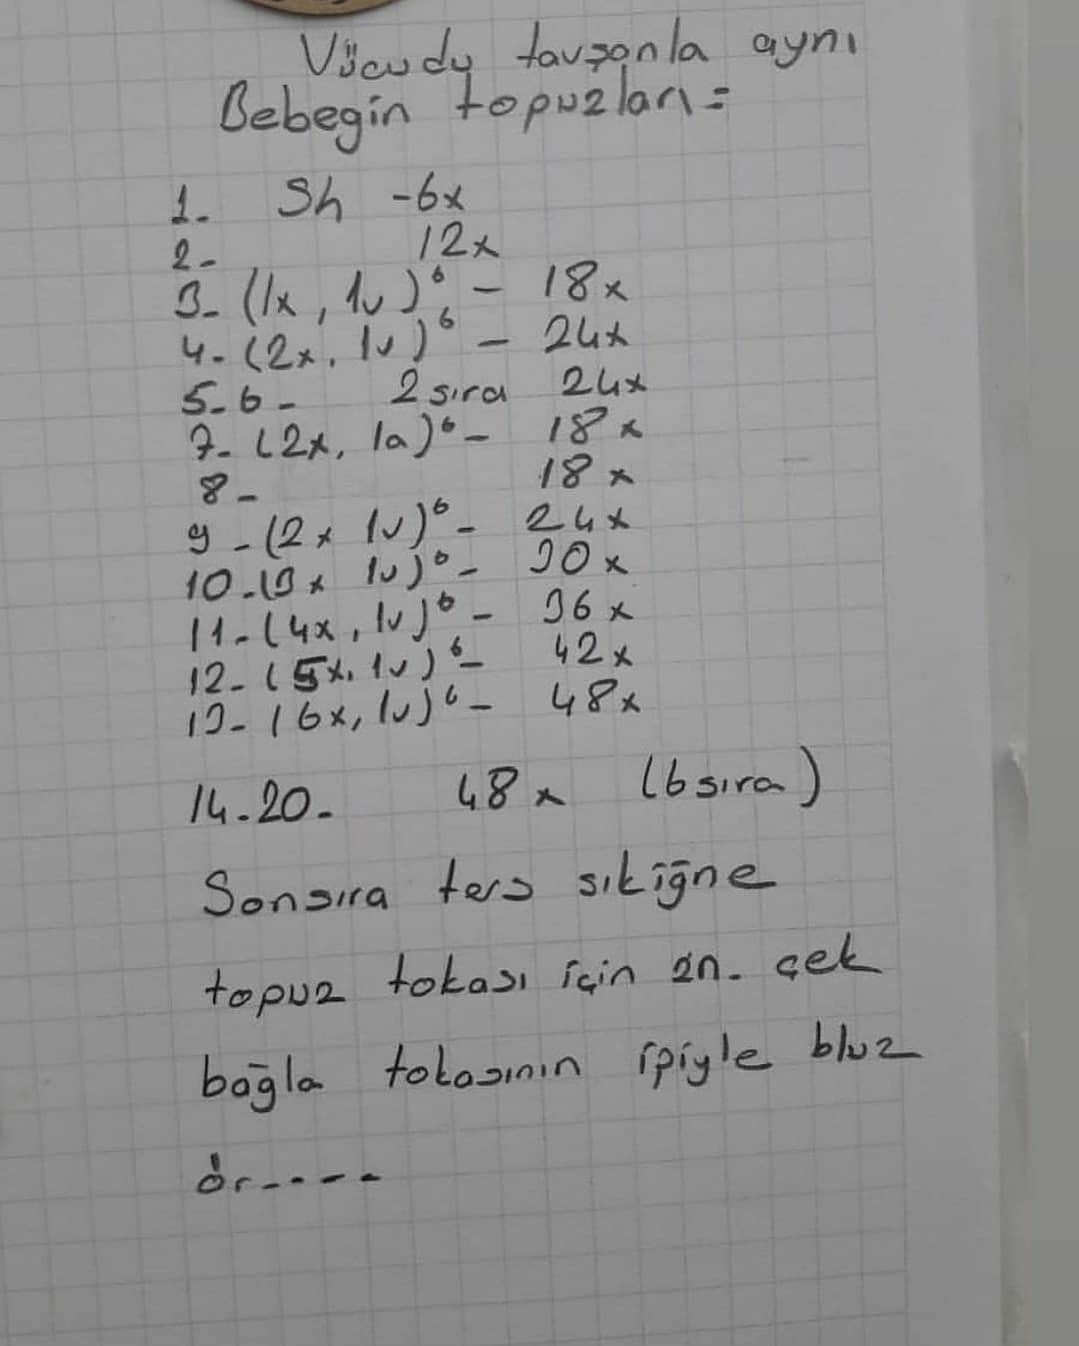 Vücudu tavşanla aynı
Bebegin topuzları =
1- Sh -6x
2- 12x
3- (1x, 1v)⁶ - 18x
4- (2x, 1v)⁶ - 24x
5-6- 2 sıra 24x
7- (2x, 1a)⁶ - 18x
8- 18x
9- (2x 1v)⁶ - 24x
10-(3x 1v)⁶ - 30x
11-(4x, 1v)⁶ - 36x
12-(5x, 1v)⁶ - 42x
13-(6x, 1v)⁶ - 48x
14-20- 48x (6 sıra)
Sonsıra ters sıkiğne
topuz tokası için zn. çek
bağla tokasının ipiyle bluz
ör----